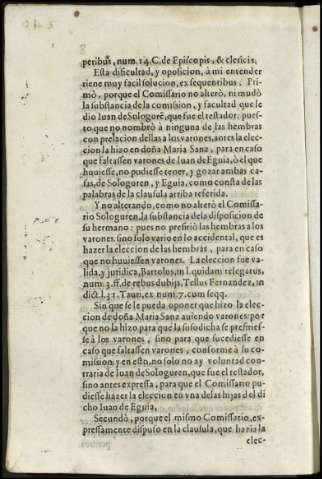 peribus, num. 14. C. de Episcopis, & clericis.
Esta dificultad, y oposicion, à mi entender
tiene muy facil solucion, ex sequentibus. Pri-
mò, porque el Comissario no alterò, ni mudò
la substancia de la comission, y facultad que le
dio Iuan de Sologurē, que fue el testador, pues-
to que no nombrò à ninguna de las hembras
con prelacion dellas a los varones, antes la elec-
cion la hizo en doña Maria Sanz, para en caso
que faltassen varones de Iuan de Eguia, ò el que
huuiesse, no pudiesse tener, y gozar ambas ca-
sas, de Sologuren, y Eguia, como consta de las
palabras de la clausula arriba referida.
Y no alterando, como no alterò el Comissa-
rio Sologuren la substancia de la disposicion de
su hermano: pues no prefiriò las hembras a los
varones sino solo variò en lo accidental, que es
hazer la eleccion de las hembrás, para en caso
que no huuiessen varones. La eleccion fue va-
lida, y juridica, Bartolus, in l. quidam relegatus,
num. 3. ff. de rebus dubijs, Tellus Fernandez, in
dict. l. 31. Taur. ex num. 7. cum seqq.
Sin que se le pueda oponer que hizo la elec-
cion de doña Maria Sanz auiendo varones: por
que no la hizo para que la susodicha se prefiries-
se à los varones, sino para que sucediesse en
caso que faltassen varones, conforme à su co-
mision: y en esto, no solo no ay voluntad con-
traria de Iuan de Sologuren, que fue el testador,
sino antes expressa, para que el Comissario pu-
diesse hazer la eleccion en vna de las hijas del di
cho Iuan de Eguia.
Secundò, porque el mismo Comissario, ex-
pressamente dispuso en la clausula, que haria la
elec-